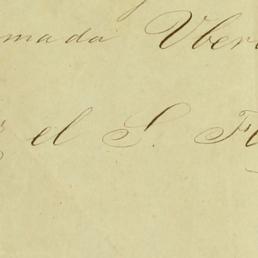 mada Vber
el S. F